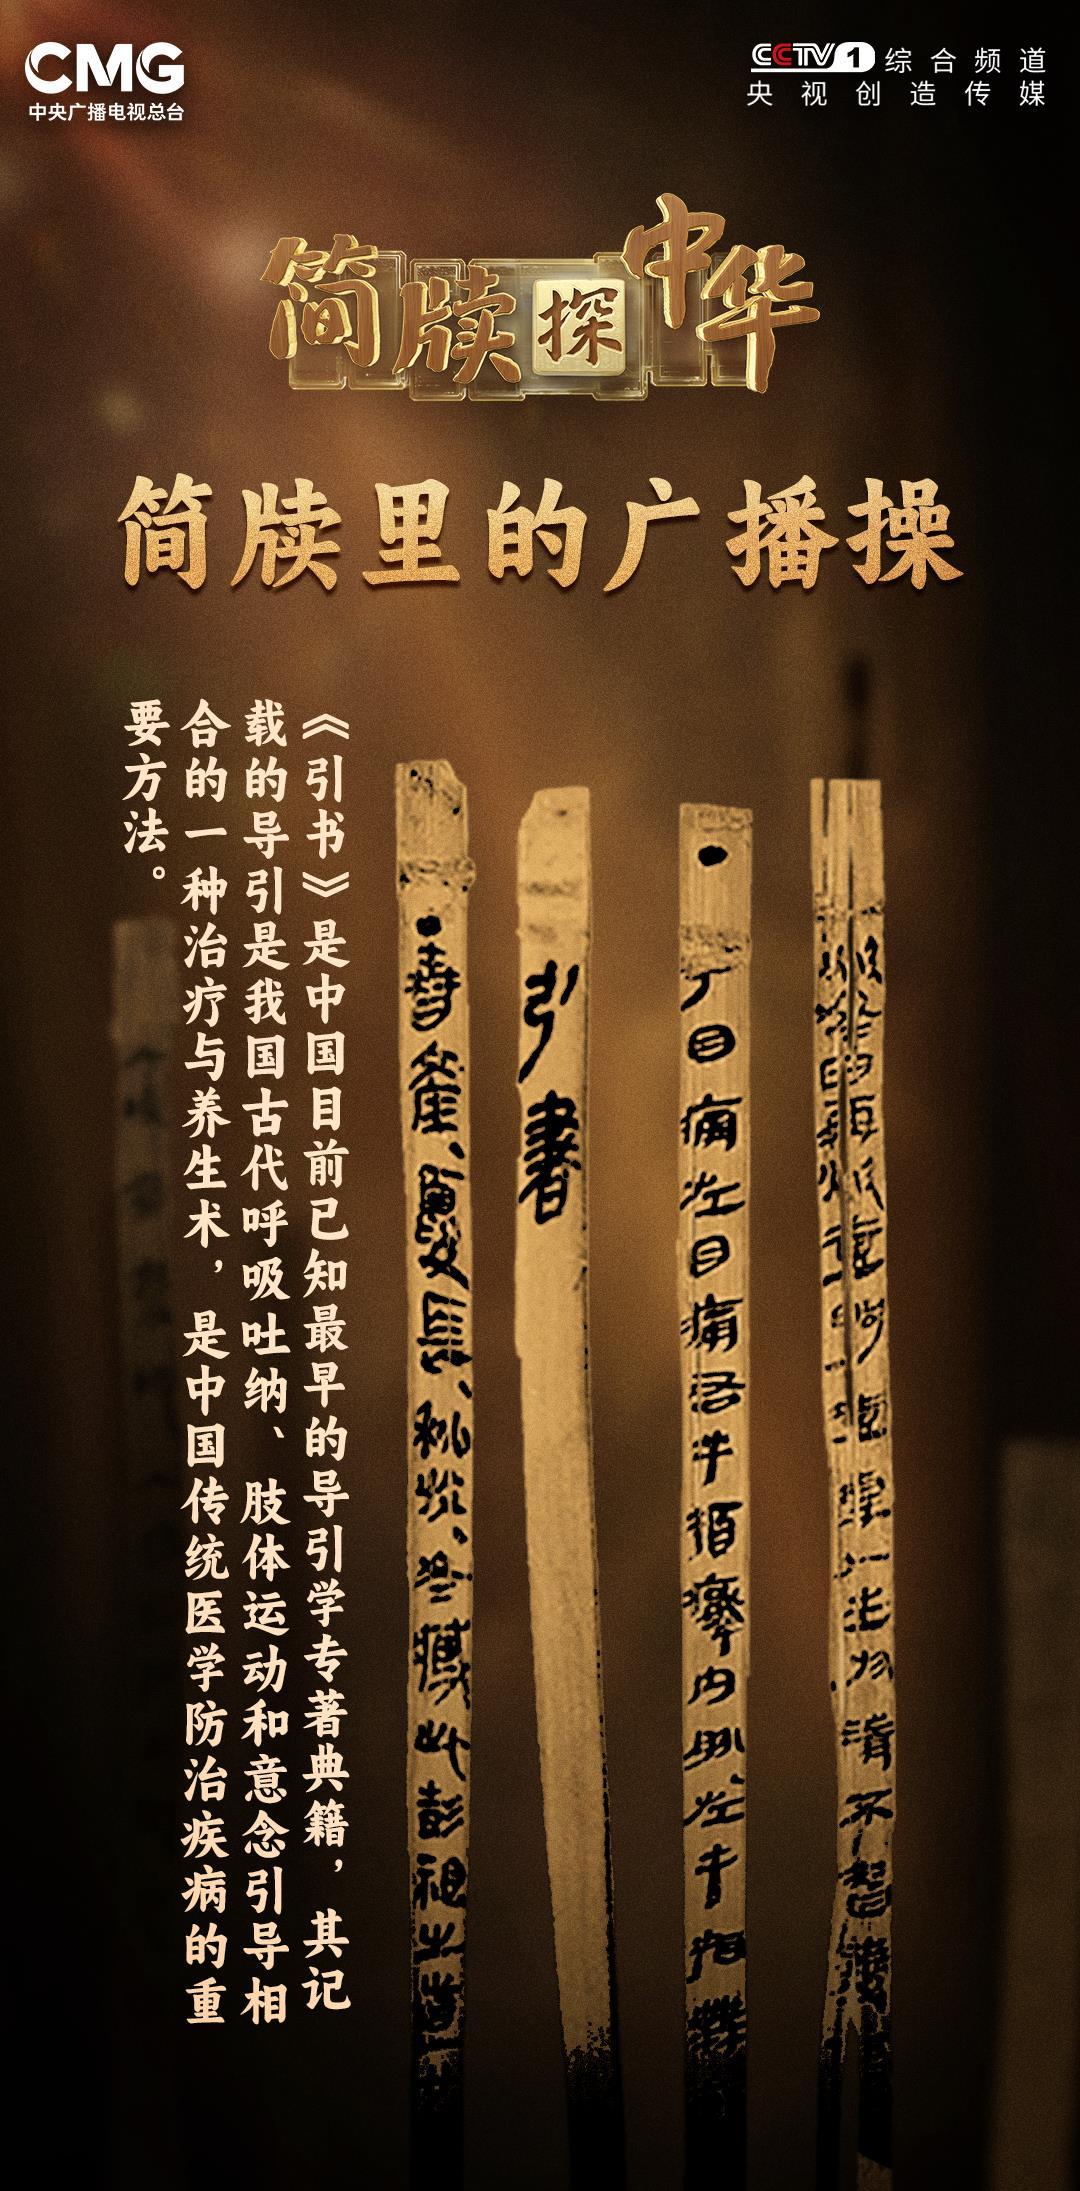 CMG
中央广播电视总台
CCTV 1 综合频道
央视创造传媒
简牍探中华
简牍里的广播操
《引书》是中国目前已知最早的导引学专著典籍，其记
载的导引是我国古代呼吸吐纳、肢体运动和意念引导相
合的一种治疗与养生术，是中国传统医学防治疾病的重
要方法。
引書
春産、夏長、秋收、冬臧此彭祖之道
目痛左目痛右手指內左手指